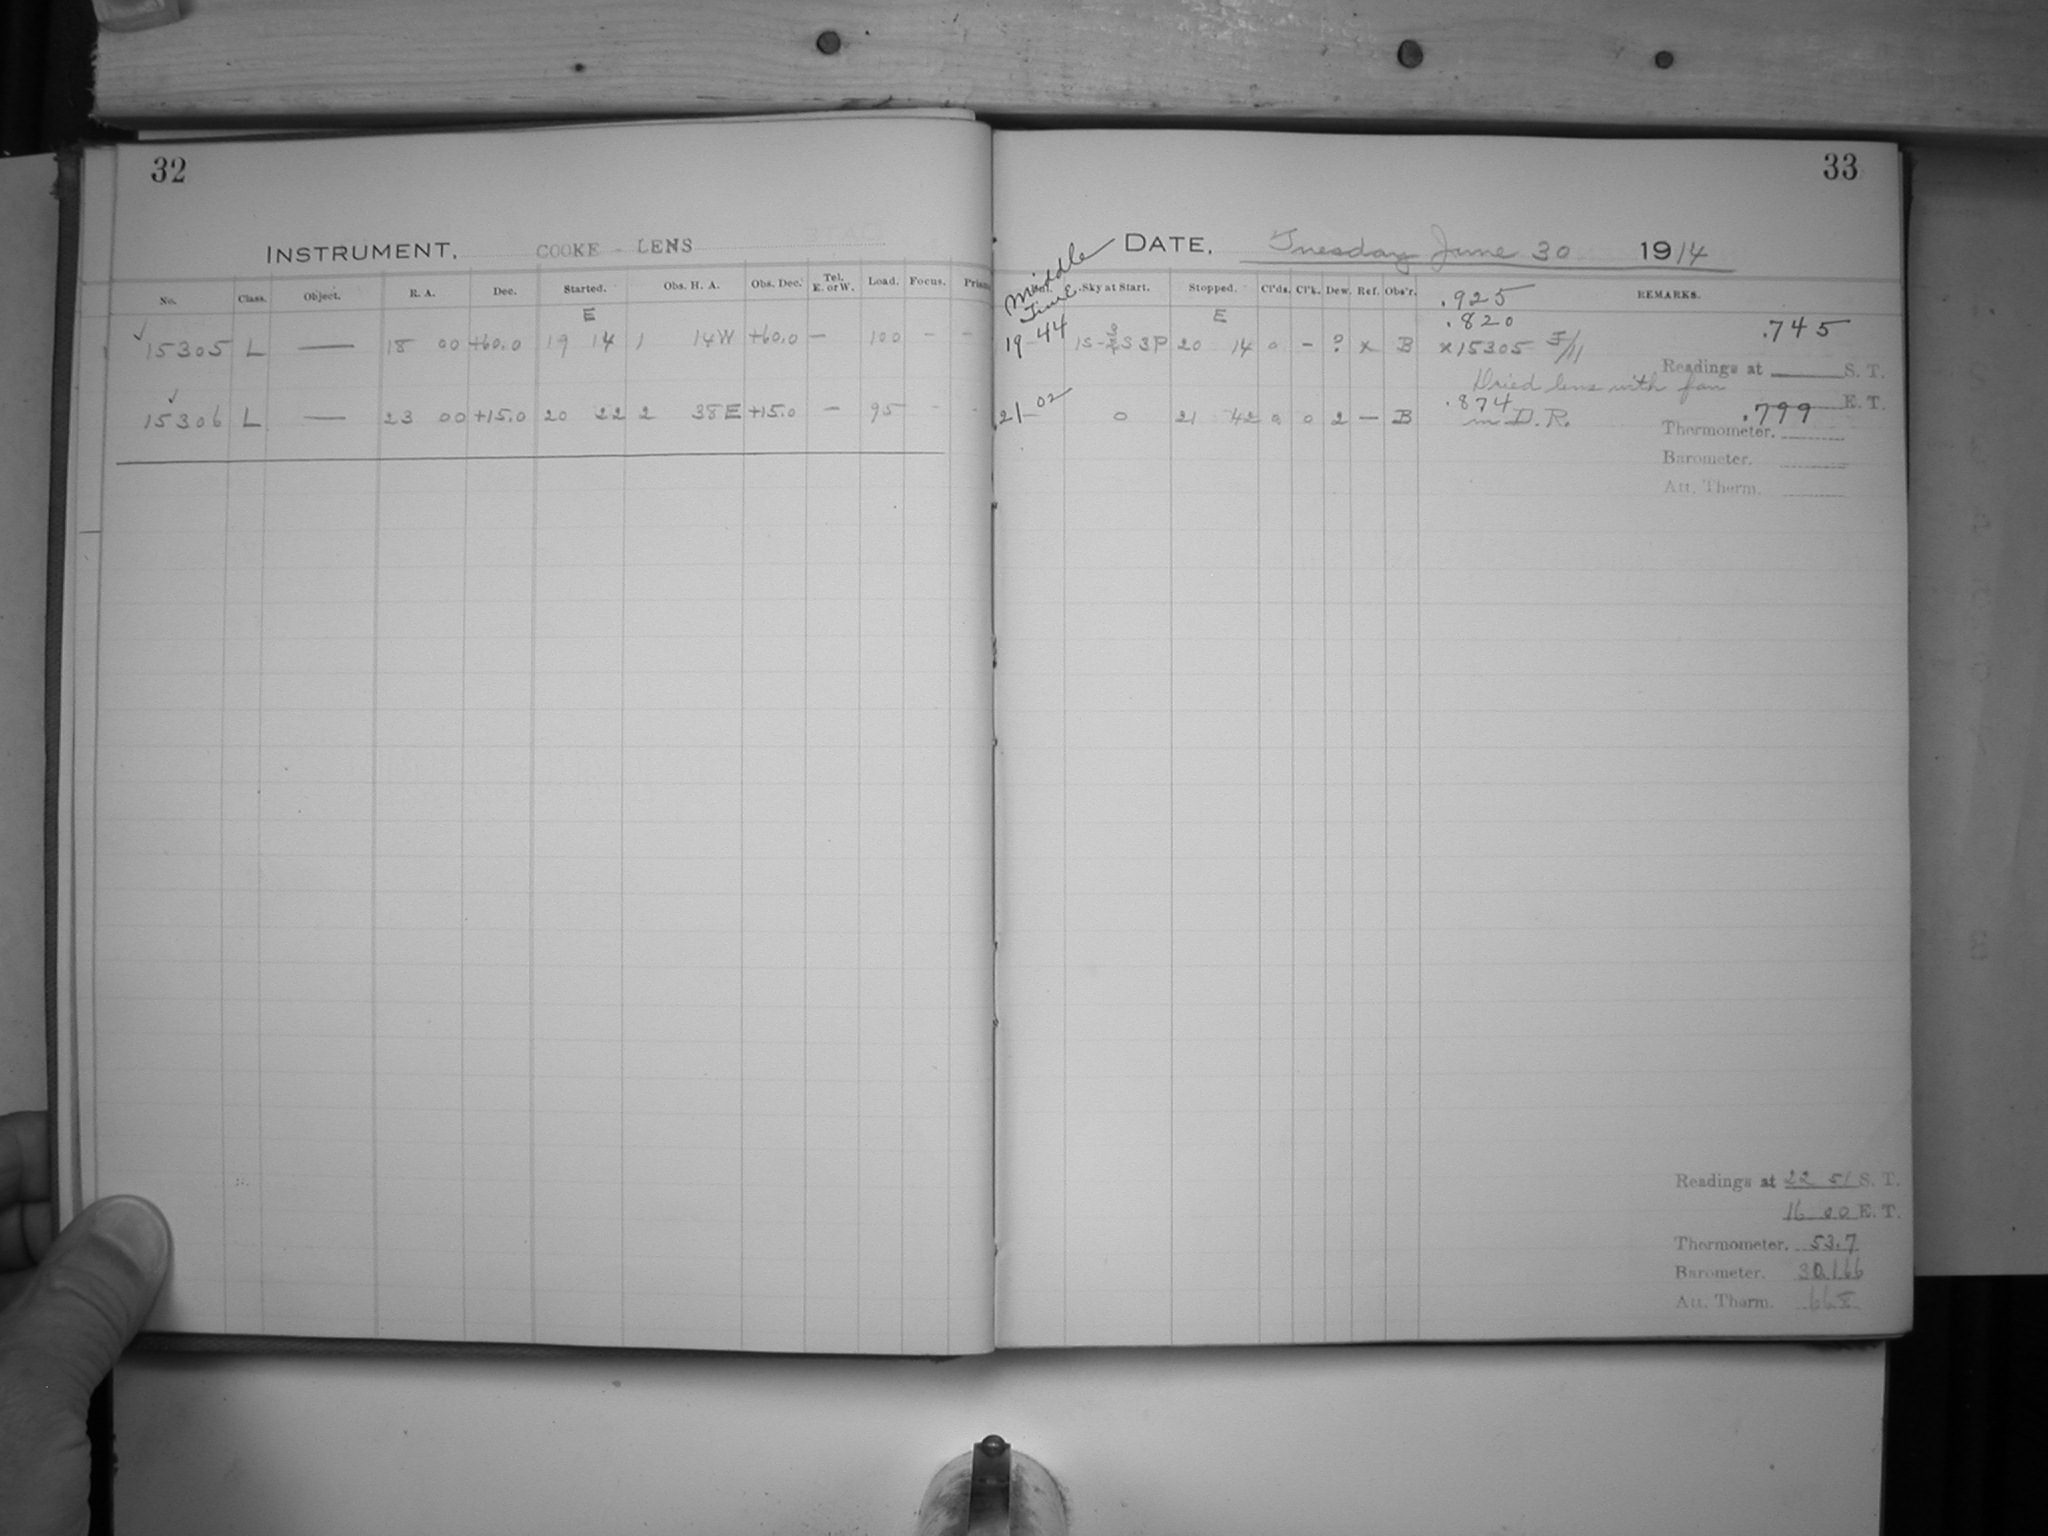 32
INSTRUMENT. COOKE - LENS
No. Class. Object. R. A. Dec. Started. Obs. H. A. Obs. Dec. Tel. E. or W. Load. Focus. Prism
E
✓ 15305 L — 18 00 +60.0 19 14 1 14W +60.0 — 100 - -
✓ 15306 L — 23 00 +15.0 20 22 2 38E +15.0 — 95 - -
33
DATE. Tuesday June 30 1914
Middle Time
Sky at Start. Stopped. Cl'ds. Cl'k. Dew. Ref. Obs'r. REMARKS.
.925
.820 .745
E
19-44 20 14 0 - ? x B x15305
Readings at S. T.
Dried lens with fan
E. T.
.874 .799
21-02 0 21 42 0 0 2 — B in D.R.
Thermometer.
Barometer.
Att. Therm.
Readings at 22 51 S. T.
16 00 E. T.
Thermometer. 53.7
Barometer. 30.166
Att. Therm.